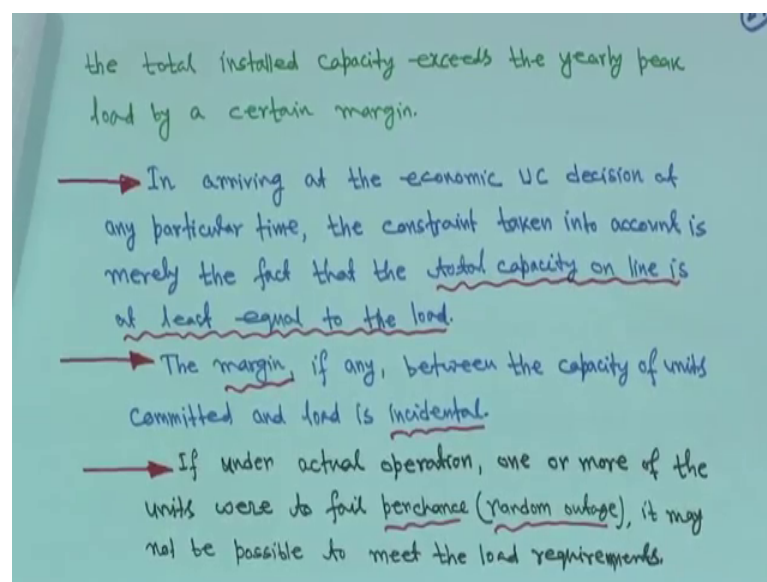 the total installed capacity exceeds the yearly peak
load by a certain margin.
In arriving at the economic UC decision at
any particular time, the constraint taken into account is
merely the fact that the total capacity on line is
at least equal to the load.
The margin, if any, between the capacity of units
committed and load is incidental.
If under actual operation, one or more of the
units were to fail perchance (random outage), it may
not be possible to meet the load requirements.